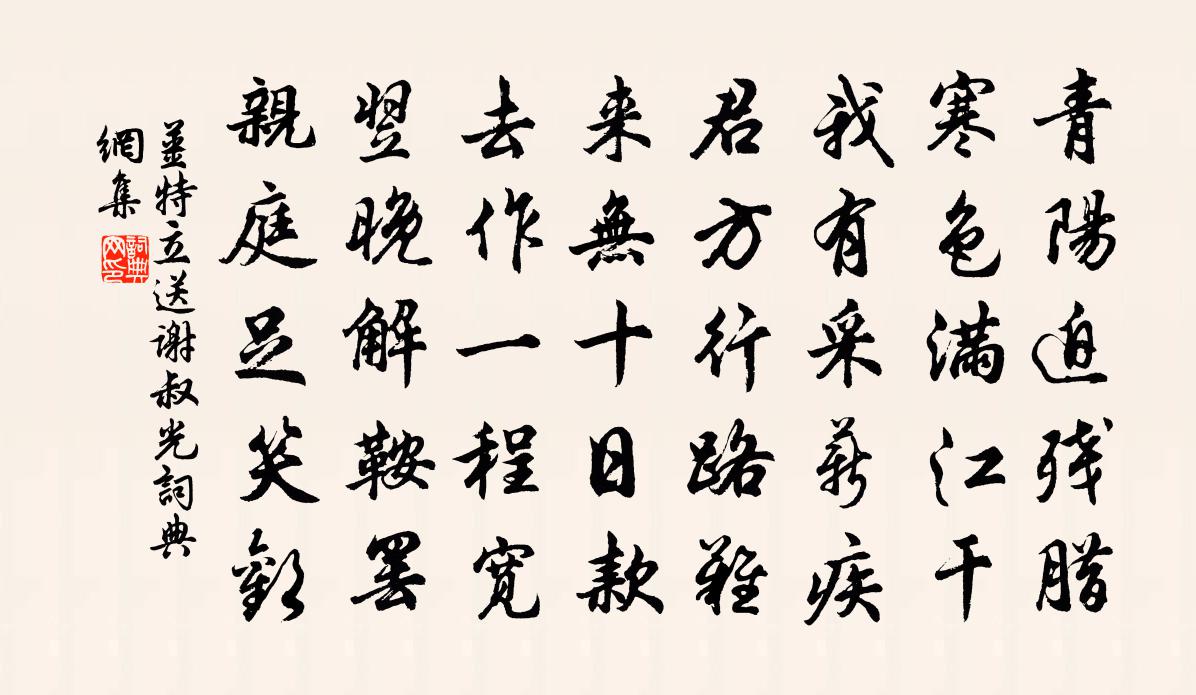 青陽迫残腊
寒色滿江干
我有采薪疾
君方行路難
来無十日款
去作一程寬
翌晚解鞍罢
親庭足笑歡
姜特立送谢叔光詞典
網集
詞典网印